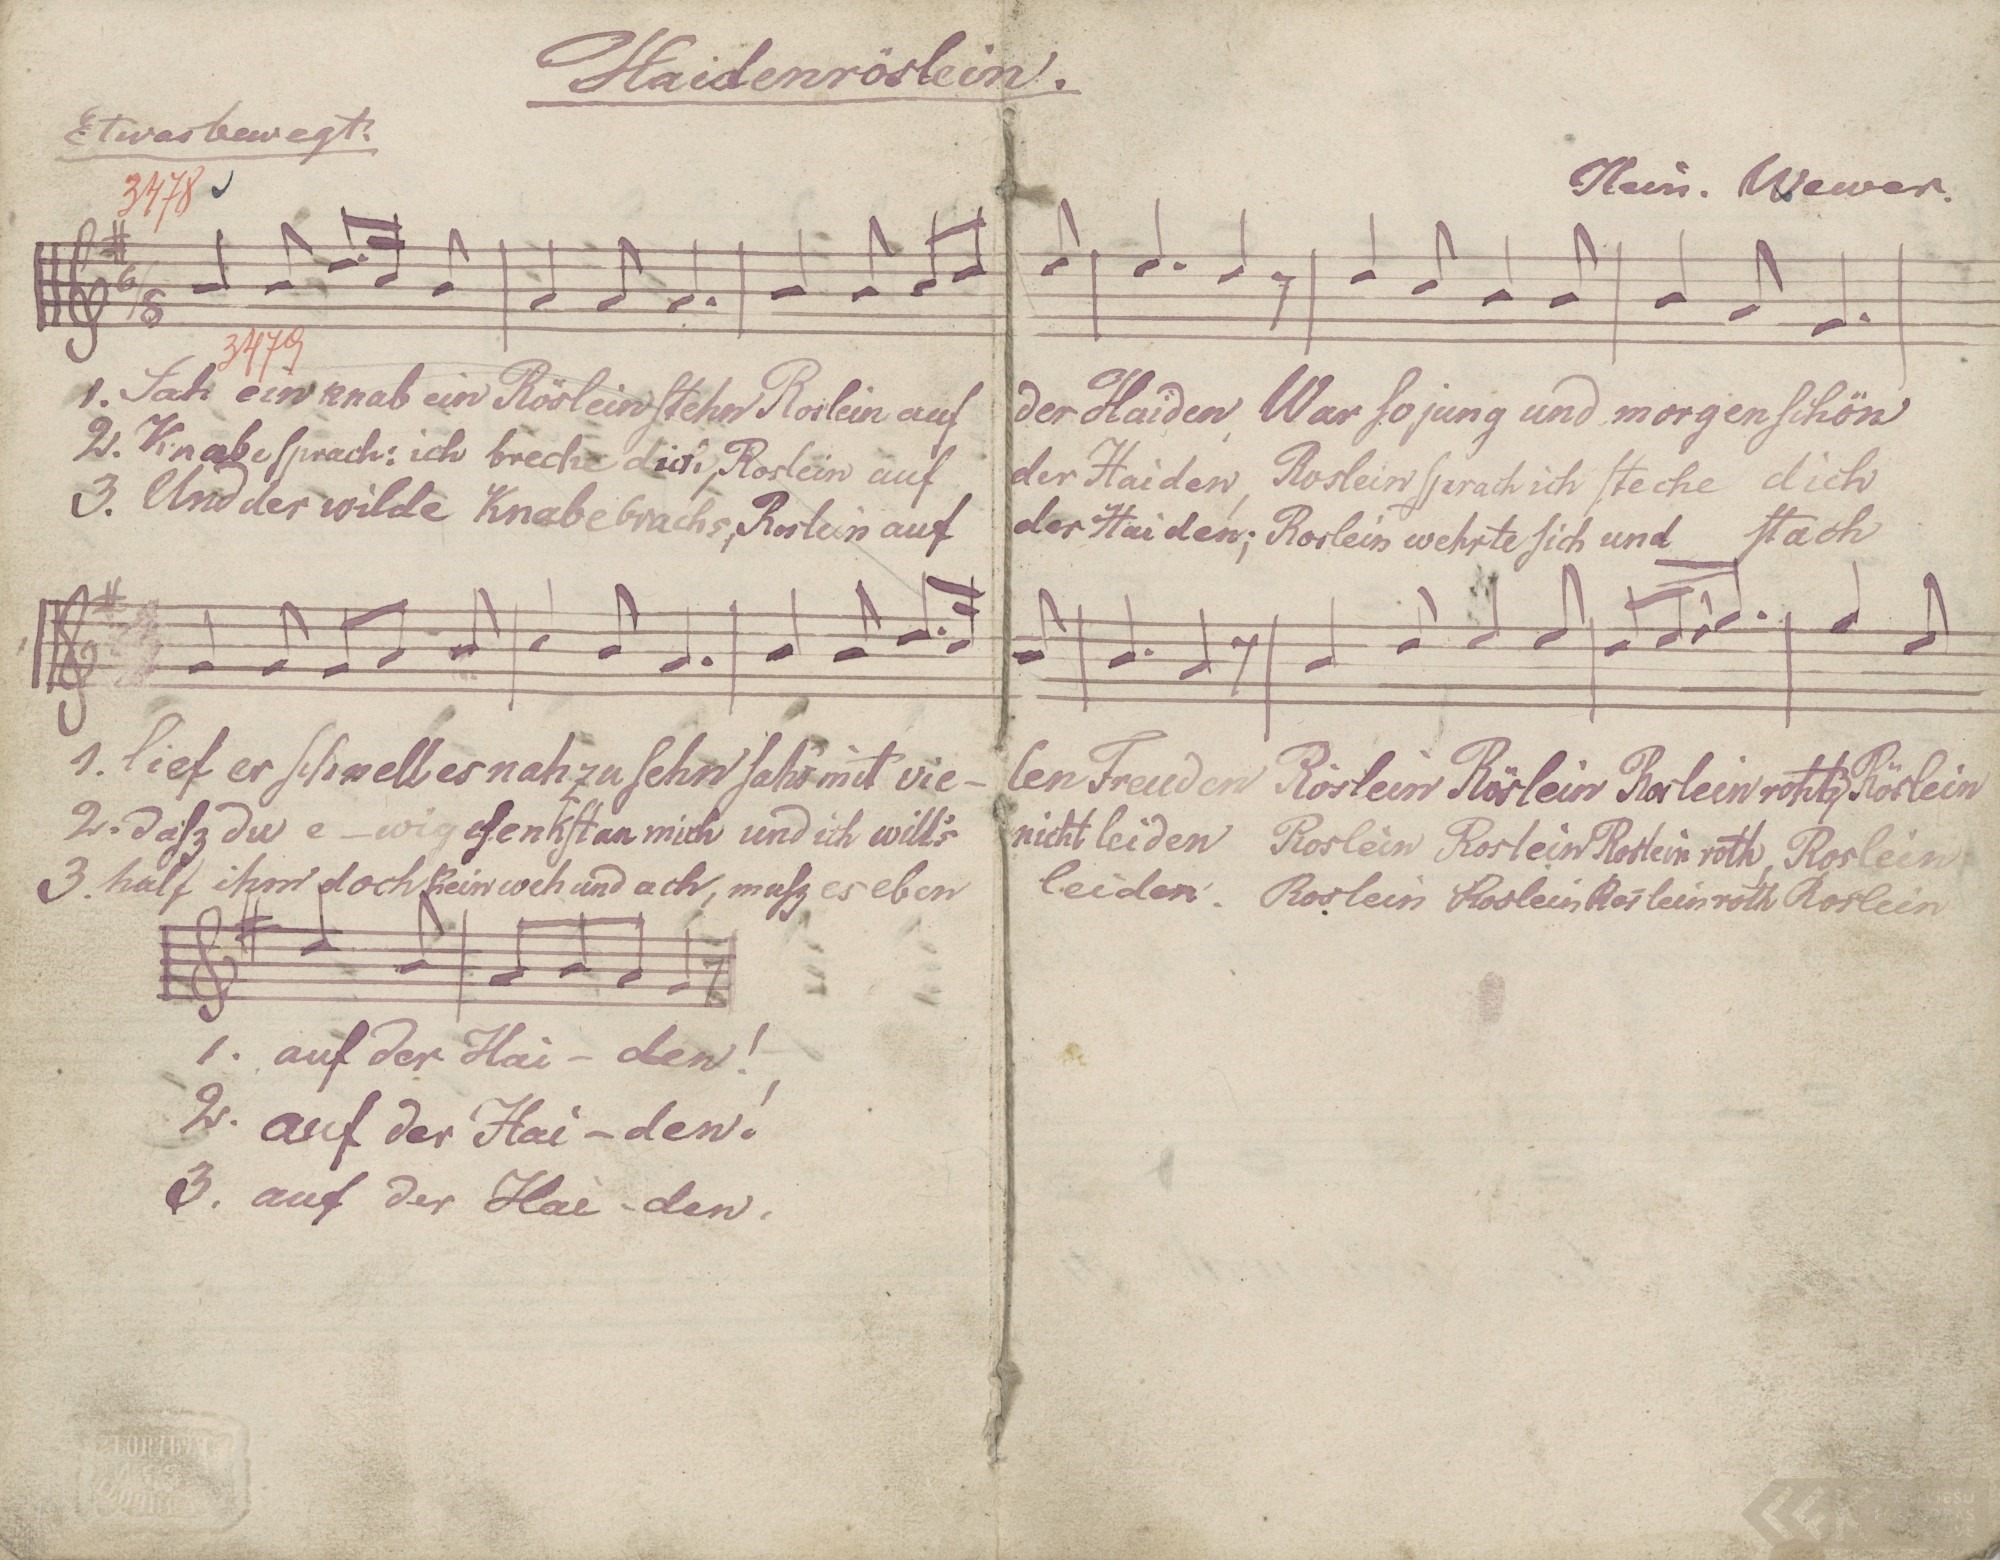 Haidenröslein.
Etwas bewegt.
3478
Hein. Wewer.
6/8
3479
1. Sah ein knab ein Röslein stehn Roslein auf der Haiden, War so jung und morgenschön
2. Knabe sprach: ich breche dich, Roslein auf der Haiden, Roslein sprach ich steche dich
3. Und der wilde Knabe brachs, Roslein auf der Haiden; Roslein wehrte sich und stach
1. lief er schnell es nah zu sehn sahs mit vie- len Freuden Röslein Röslein Roslein roth, Röslein
2. dasz du e-wig denkst an mich und ich will's nicht leiden Roslein Roslein Roslein roth, Roslein
3. half ihm doch kein weh und ach, musz es eben leiden. Roslein Roslein Roslein roth Roslein
1. auf der Hai- den!
2. auf der Hai-den!
3. auf der Hai-den.